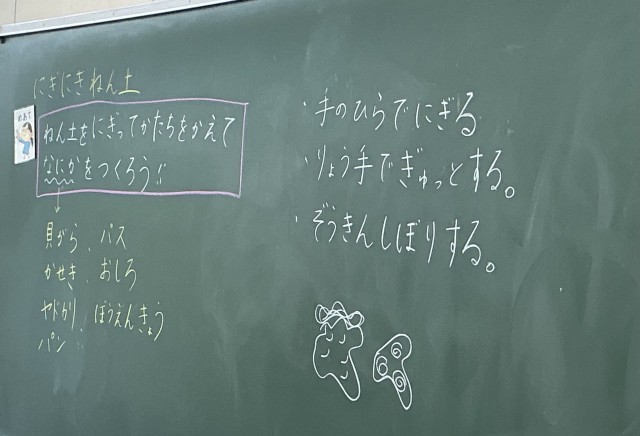 にぎにきねん土
めあて
ねん土をにぎってかたちをかえて
なにかをつくろう!!
貝がら、バス
かせき、おしろ
ヤドカリ、ぼうえんきょう
パン
・手のひらでにぎる
・りょう手でぎゅっとする。
・ぞうきんしぼりする。